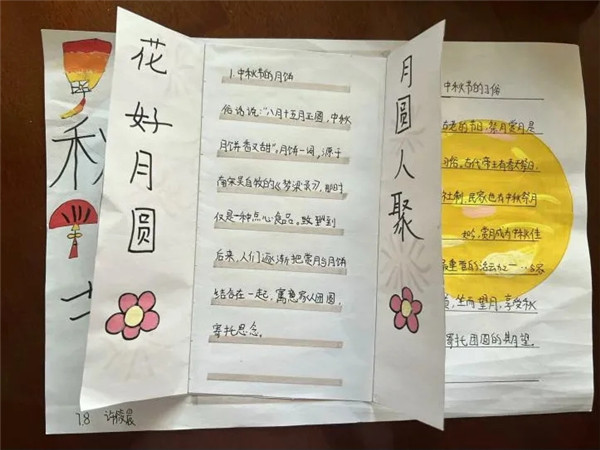 花好月圆
1.中秋节的月饼
俗话说:"八月十五月正圆,中秋
月饼香又甜"。月饼一词,源于
南宋吴自牧的《梦梁录》,那时
仅是一种点心食品。到
后来,人们逐渐把赏月与月饼
结合在一起,寓意家人团圆,
寄托思念。
月圆人聚
中秋节的习俗
的节日,祭月赏月是
习俗。古代帝王有春天祭日、
社制,民家也有中秋祭月
,赏月成为中秋佳
最重要的活动之一
,坐而望月,享受秋
寄托团圆的期望。
秋
7.8 许